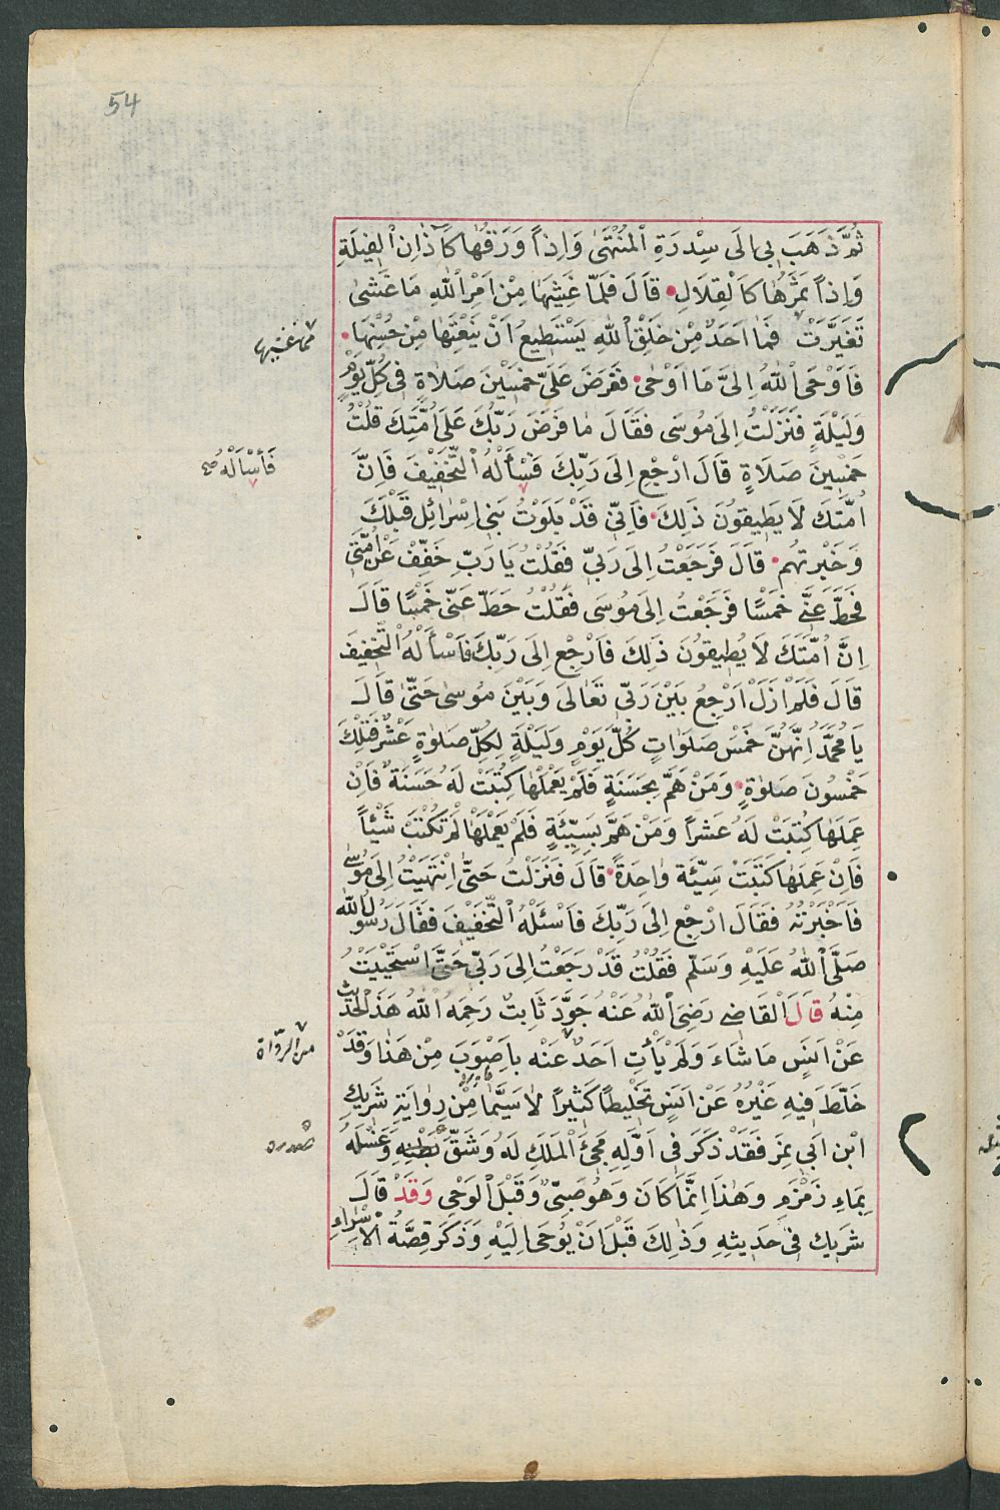 54
ثُمَّ ذَهَبَ بِي اِلَى سِدْرَةِ الْمُنْتَهٰى وَاِذَا وَرَقُهَا كَاٰذَانِ الْفِيَلَةِ
وَاِذَا ثَمَرُهَا كَالْقِلَالِ قَالَ فَلَمَّا غَشِيَهَا مِنْ اَمْرِ اللّٰهِ مَا غَشٰى
تَغَيَّرَتْ فَمَا اَحَدٌ مِنْ خَلْقِ اللّٰهِ يَسْتَطِيعُ اَنْ يَنْعَتَهَا مِنْ حُسْنِهَا
مما غشيها
فَاَوْحَى اللّٰهُ اِلَىَّ مَا اَوْحٰى فَفَرَضَ عَلَىَّ خَمْسِينَ صَلَاةٍ فِى كُلِّ يَوْمٍ
وَلَيْلَةٍ فَنَزَلْتُ اِلَى مُوسَى فَقَالَ مَا فَرَضَ رَبُّكَ عَلَى اُمَّتِكَ قُلْتُ
خَمْسِينَ صَلَاةٍ قَالَ ارْجِعْ اِلَى رَبِّكَ فَسْأَلْهُ التَّخْفِيفَ فَاِنَّ
فَأَسْأَلْهُ صح
اُمَّتَكَ لَا يَطِيقُونَ ذَلِكَ فَاِنِّى قَدْ بَلَوْتُ بَنِى اِسْرَائِل قَبْلَكَ
وَخَبَرْتُهُمْ قَالَ فَرَجَعْتُ اِلَى رَبِّى فَقُلْتُ يَا رَبِّ خَفِّفْ عَنْ اُمَّتِى
فَحَطَّ عَنِّى خَمْسًا فَرَجَعْتُ اِلَى مُوسَى فَقُلْتُ حَطَّ عَنِّى خَمْسًا قَالَ
اِنَّ اُمَّتَكَ لَا يُطِيقُونَ ذَلِكَ فَارْجِعْ اِلَى رَبِّكَ فَاَسْأَلْهُ التَّخْفِيفَ
قَالَ فَلَمْ اَزَلْ اَرْجِعُ بَيْنَ رَبِّى تَعَالَى وَبَيْنَ مُوسٰى حَتَّى قَالَ
يَا مُحَمَّدُ اِنَّهُنَّ خَمْسُ صَلَوَاتٍ كُلَّ يَوْمٍ وَلَيْلَةٍ لِكُلِّ صَلوٰةٍ عَشْرٌ فَتِلْكَ
خَمْسُونَ صَلوٰةٍ وَمَنْ هَمَّ بِحَسَنَةٍ فَلَمْ يَعْمَلْهَا كُتِبَتْ لَهُ حَسَنَةً فَاِنْ
عَمِلَهَا كُتِبَتْ لَهُ عَشْرًا وَمَنْ هَمَّ بِسَيِّئَةٍ فَلَمْ يَعْمَلْهَا لَمْ تَكْتُبْ شَيْئًا
فَاِنْ عَمِلَهَا كُتِبَتْ سَيِّئَةً وَاحِدَةً قَالَ فَنَزَلْتُ حَتَّى انْتَهَيْتُ اِلَى مُوسَى
فَاَخْبَرْتُهُ فَقَالَ ارْجِعْ اِلَى رَبِّكَ فَاسْئَلْهُ التَّخْفِيفَ فَقَالَ رَسُولُ اللّٰه
صَلَّى اللّٰهُ عَلَيْهِ وَسَلَّم فَقُلْتُ قَدْ رَجَعْتُ اِلَى رَبِّى حَتَّى اسْتَحْيَيْتُ
مِنْهُ قَالَ الْقَاضِى رَضِىَ اللّٰهُ عَنْهُ جَوَّدَ ثَابِتٌ رَحِمَهُ اللّٰهُ هَذَا الْحَدِيثَ
عَنْ اَنَسٍ مَا شَاءَ وَلَمْ يَأْتِ اَحَدٌ عَنْه بِاَصْوَبَ مِنْ هَذَا وَقَدْ
من الرّواة
خَلَّطَ فِيهِ غَيْرُهُ عَنْ اَنَسٍ تَخْلِيطًا كَثِيرًا لَا سِيَّمَا مِنْ رِوَايَةِ شَرِيكِ
ابْنِ اَبِى نَمِرٍ فَقَدْ ذَكَرَ فِى اَوَّلِهِ مَجِئَ الْمَلَكِ لَهُ وَشَقَّ بَطْنِهِ وَغَسْلَهُ
بِمَاءِ زَمْزَمٍ وَهٰذَا اِنَّمَا كَانَ وَهُوَ صَبِىٌّ وَقَبْلَ الْوَحْىِ وَقَدْ قَالَ
شَرِيك فِى حَدِيثِهِ وَذٰلِكَ قَبْلَ اَنْ يُوحَى اِلَيْهِ وَذَكَرَ قِصَّةَ الْاِسْرَاءِ